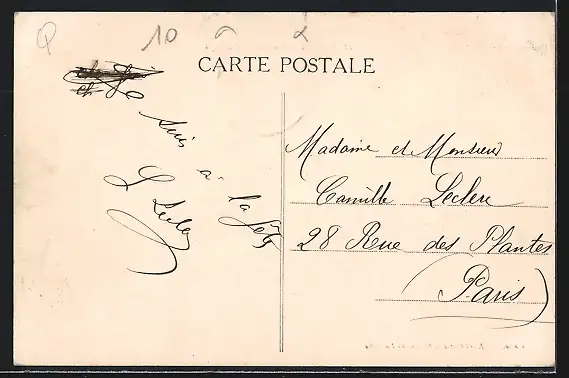 Q
10
CARTE POSTALE
Je
suis
à la fête
G Leclerc
Madame et Monsieur
Camille Leclerc
28 Rue des Plantes
(Paris)